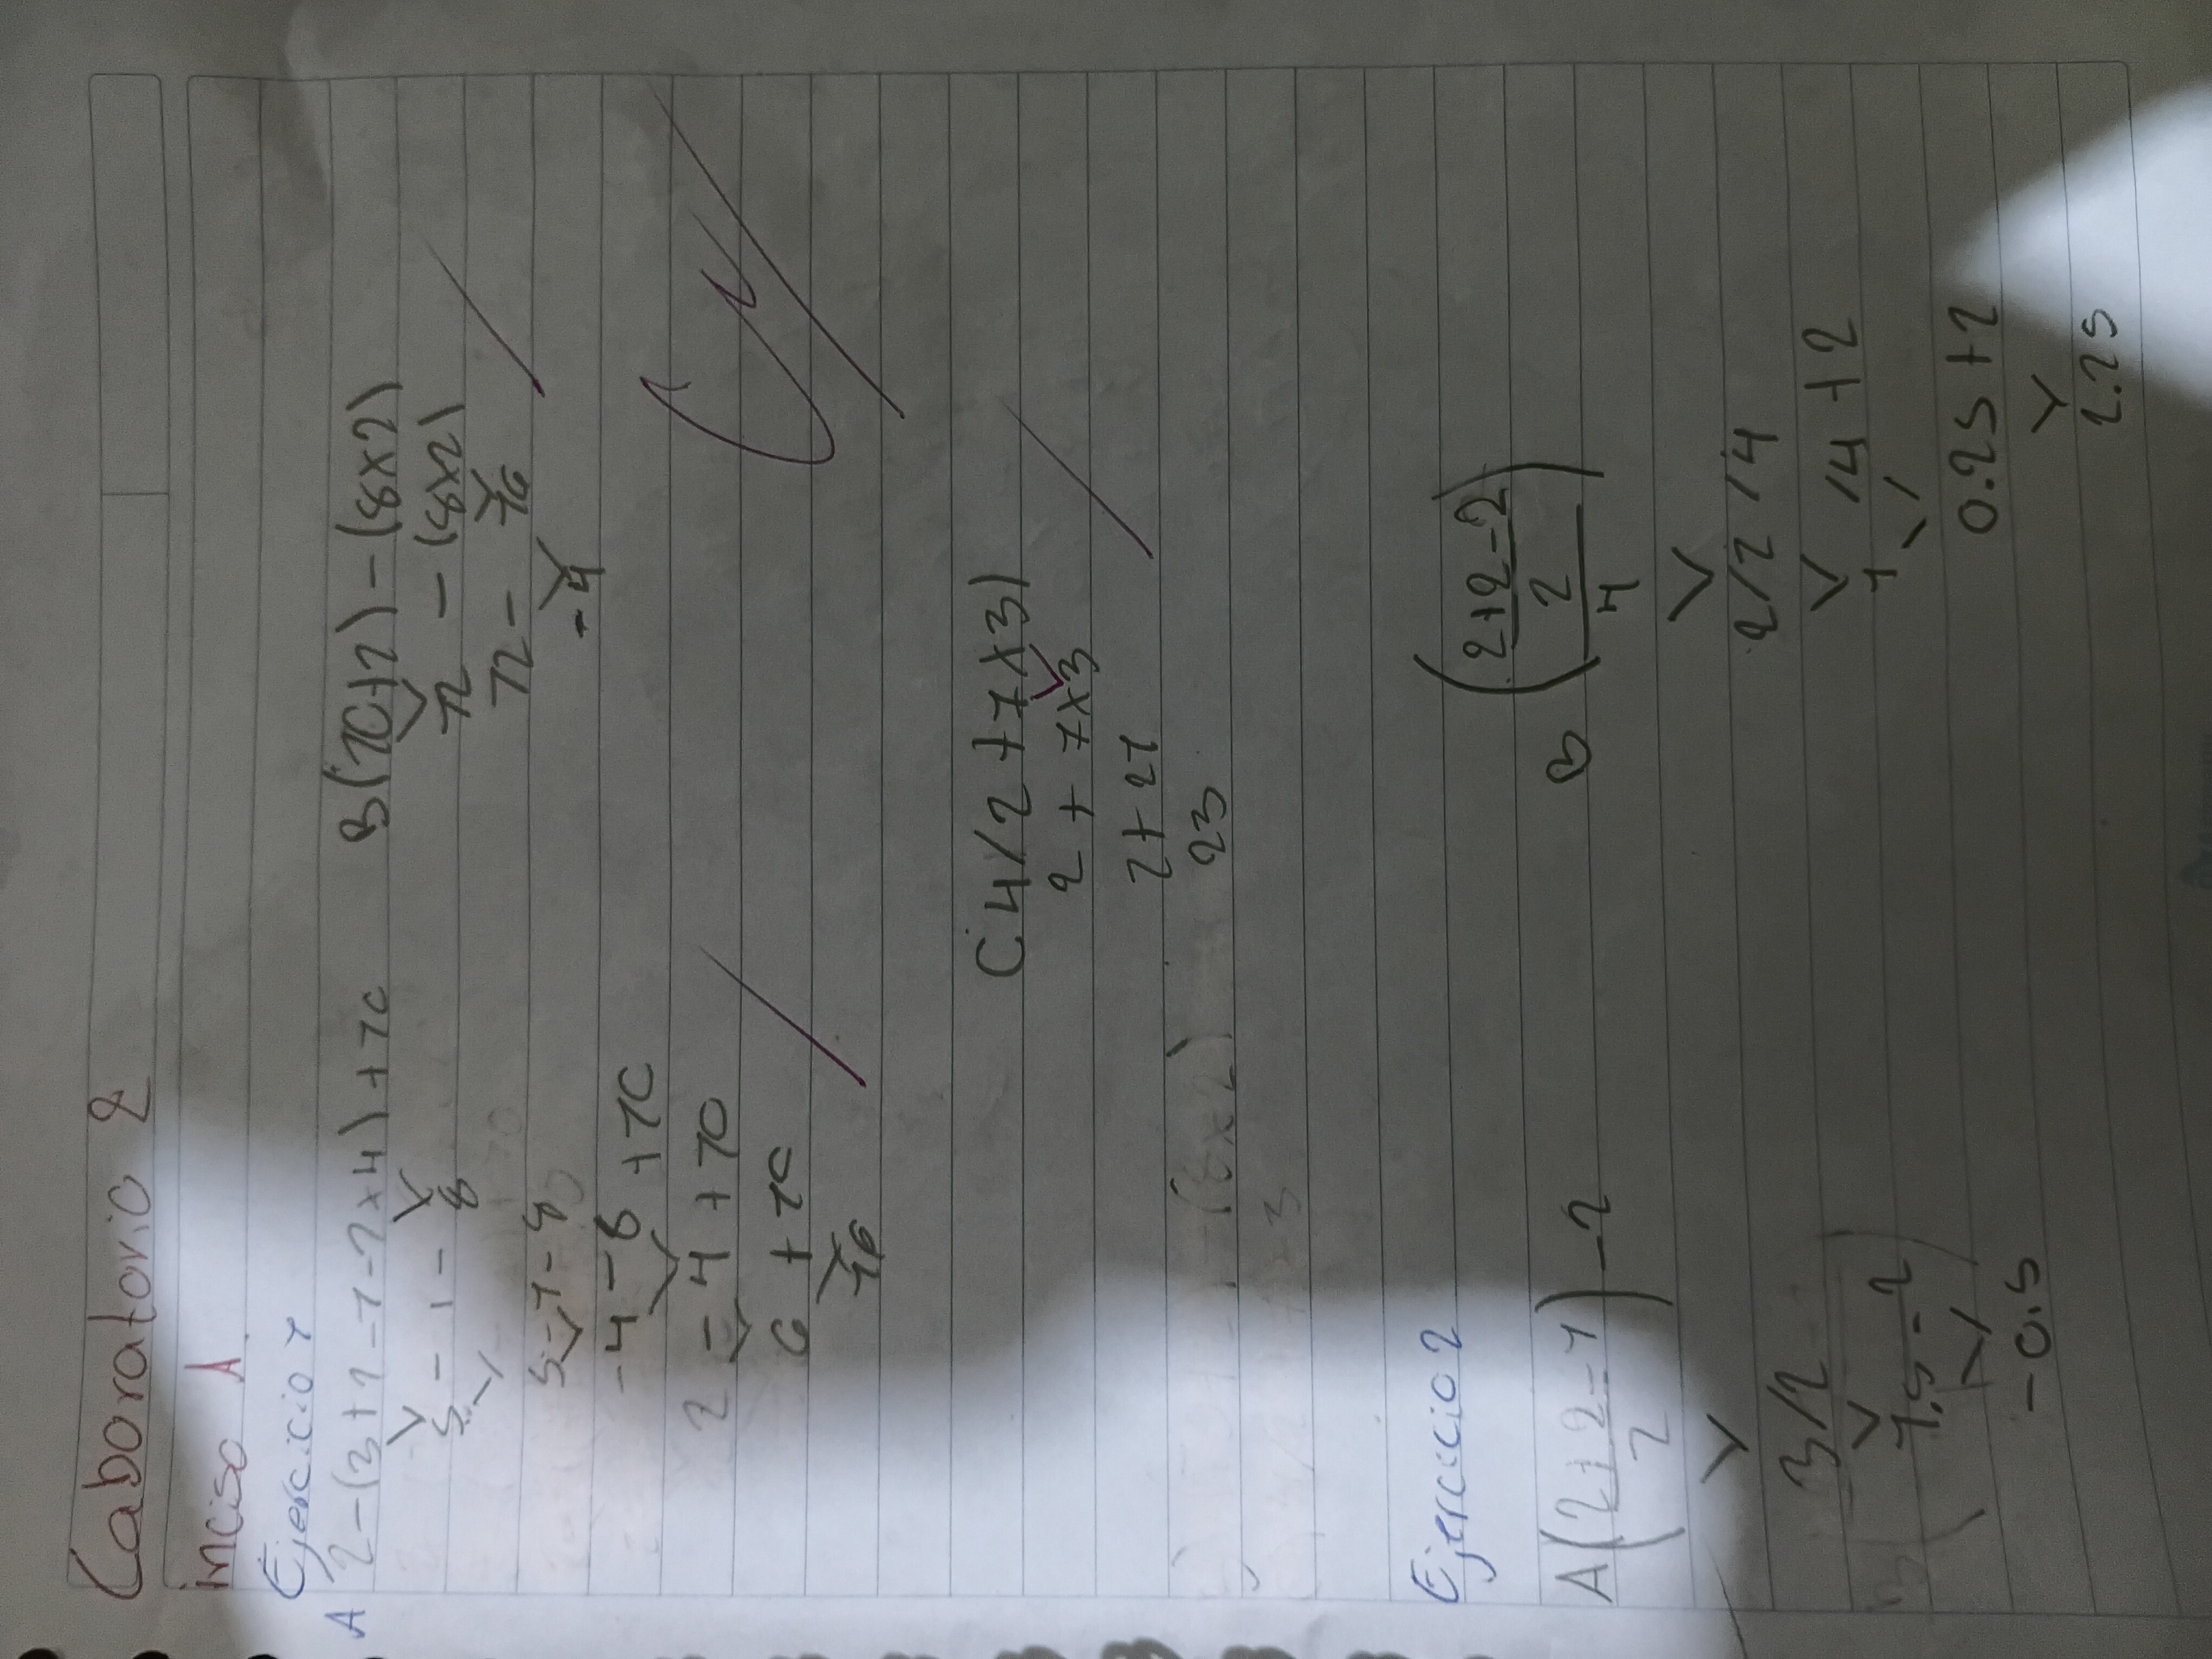 Laboratorio 2
inciso A
Ejercicio 1
A 2-(3+2-1-2x4)+10
5-1-8
5-1-8
-4-8+10
2-4+10
6+10
16
B(10+2)-(8x2)
12-(8x2)
12-16
-4
C.4/2+7x3)
2+7x3
2+21
23
-(8x2)
Ejercicio 2
A(2+2-1)-2
2
3/2
1.5-2
-0.5
B (2+2-2)
2
4
2/2/4
1/4+2
0.25+2
2.25